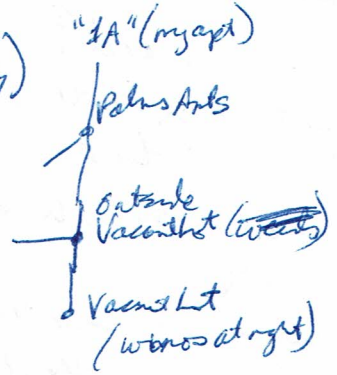 "1A" (my apt)
Palms Apts
outside
Vacant Lot
Vacant Lot
(winos at night)